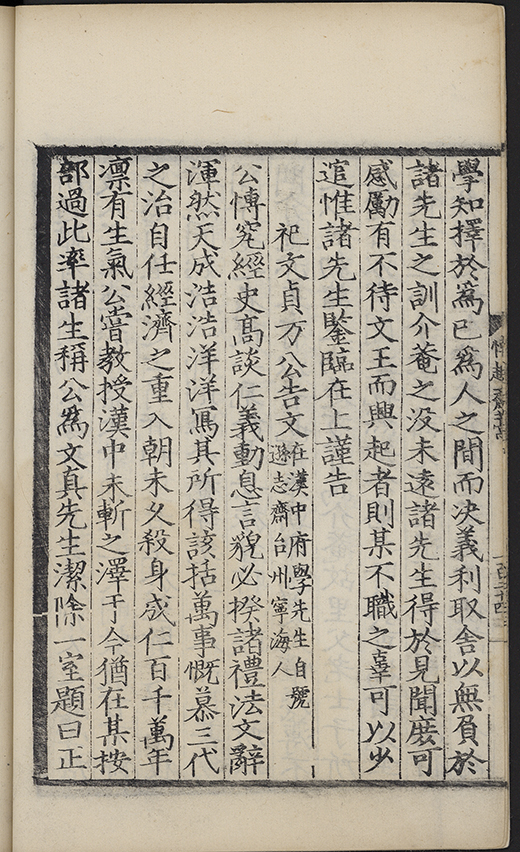 學知擇於爲已爲人之間而決義利取舍以無負於
諸先生之訓介菴之没未遠諸先生得於見聞度可
感勵有不待文王而興起者則某不職之辜可以少
逭惟諸先生鑒臨在上謹告
祀文貞方公告文在漢中府學先生自號
遜志齋台州寧海人
公愽究經史髙談仁義動息言貌必揆諸禮法文辭
渾然天成浩浩洋洋冩其所得該括萬事慨慕三代
之治自任經濟之重入朝未乆殺身成仁百千萬年
凛有生氣公甞教授漢中未斬之澤于今猶在某按
部過此率諸生稱公爲文真先生潔除一室題曰正